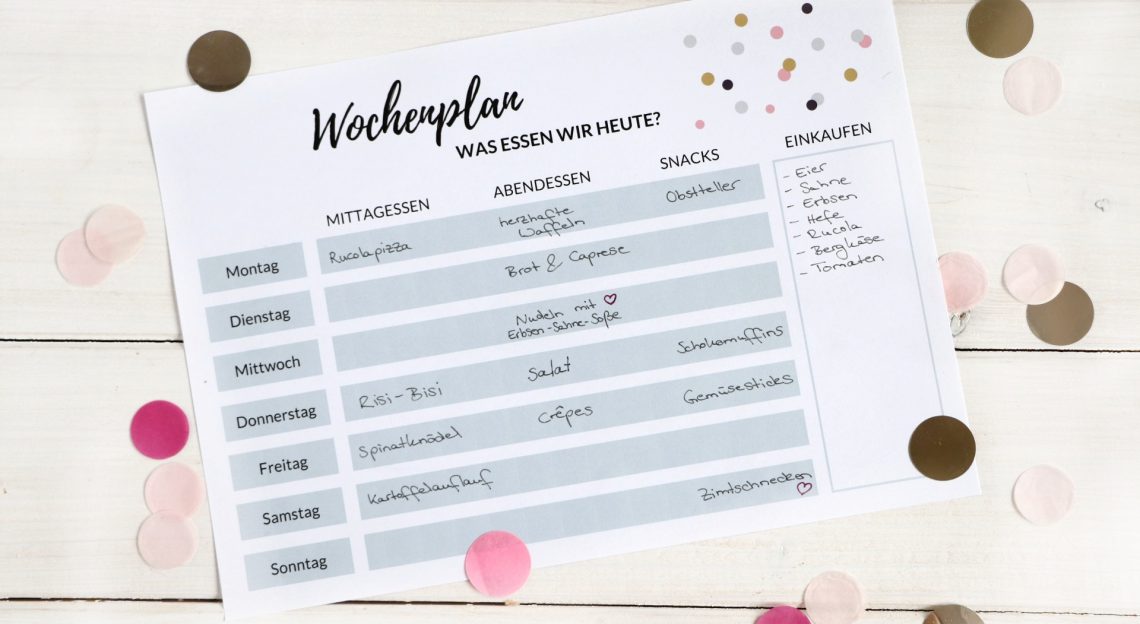 Wochenplan
WAS ESSEN WIR HEUTE?
MITTAGESSEN
ABENDESSEN
SNACKS
EINKAUFEN
Montag
Rucolapizza
herzhafte
Waffeln
Obstteller
Dienstag
Brot & Caprese
Mittwoch
Nudeln mit ♡
Erbsen-Sahne-Soße
Donnerstag
Risi-Bisi
Salat
Schokomuffins
Freitag
Spinatknödel
Crêpes
Gemüsesticks
Samstag
Kartoffelauflauf
Sonntag
Zimtschnecken
♡
- Eier
- Sahne
- Erbsen
- Hefe
- Rucola
- Bergkäse
- Tomaten